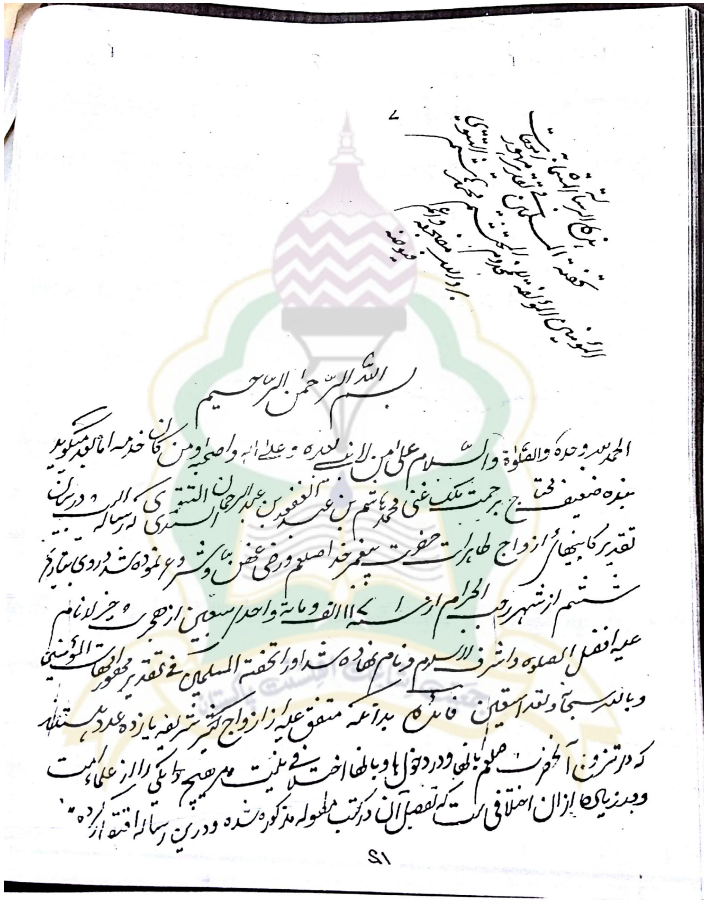 هذه الرسالة المسماة
تحفة المسلمين في تقدير مهور امهات
المؤمنين المؤلفة للمخدوم محمد هاشم التتوي
بسم الله الرحمن الرحيم
الحمد لله وحده والصلوة والسلام على من لا نبي بعده وعلى اله واصحابه ومن كان خدمه اما بعد میگوید
بنده ضعیف محتاج برحمت ملک غنی محمد هاشم بن عبد الغفور بن عبد الرحمان السندی التتوی که رساله ایست در بیان
تقدیر کابینهای ازواج طاهرات حضرت پیغمبر خدا صلعم و رضی عنهن و شروع نموده شد در وی بتاریخ
ششم از شهر رجب الحرام از سنه ۱۱۷۱ الف و مایة واحد و سبعین از هجرت خیر الانام
علیه افضل الصلوة واشرف السلام و نام نهاده شد او را تحفة المسلمین فی تقدیر مهور امهات المؤمنین
وبالله سبحانه وتعالى استعین فائده بدانکه متفق علیه از ازواج کثیر شریفه یازده عدد هستند
که در تزوج آنحضرت صلعم بآنها و در دخول ها و بآنها اختلافی نیست مر هیچ یکی را از علماء امت
و بعد زیاده ازان اختلافی است که تفصیل آن در کتب مطوله مذکور شده و درین رساله اقتصار کرده
۲۱